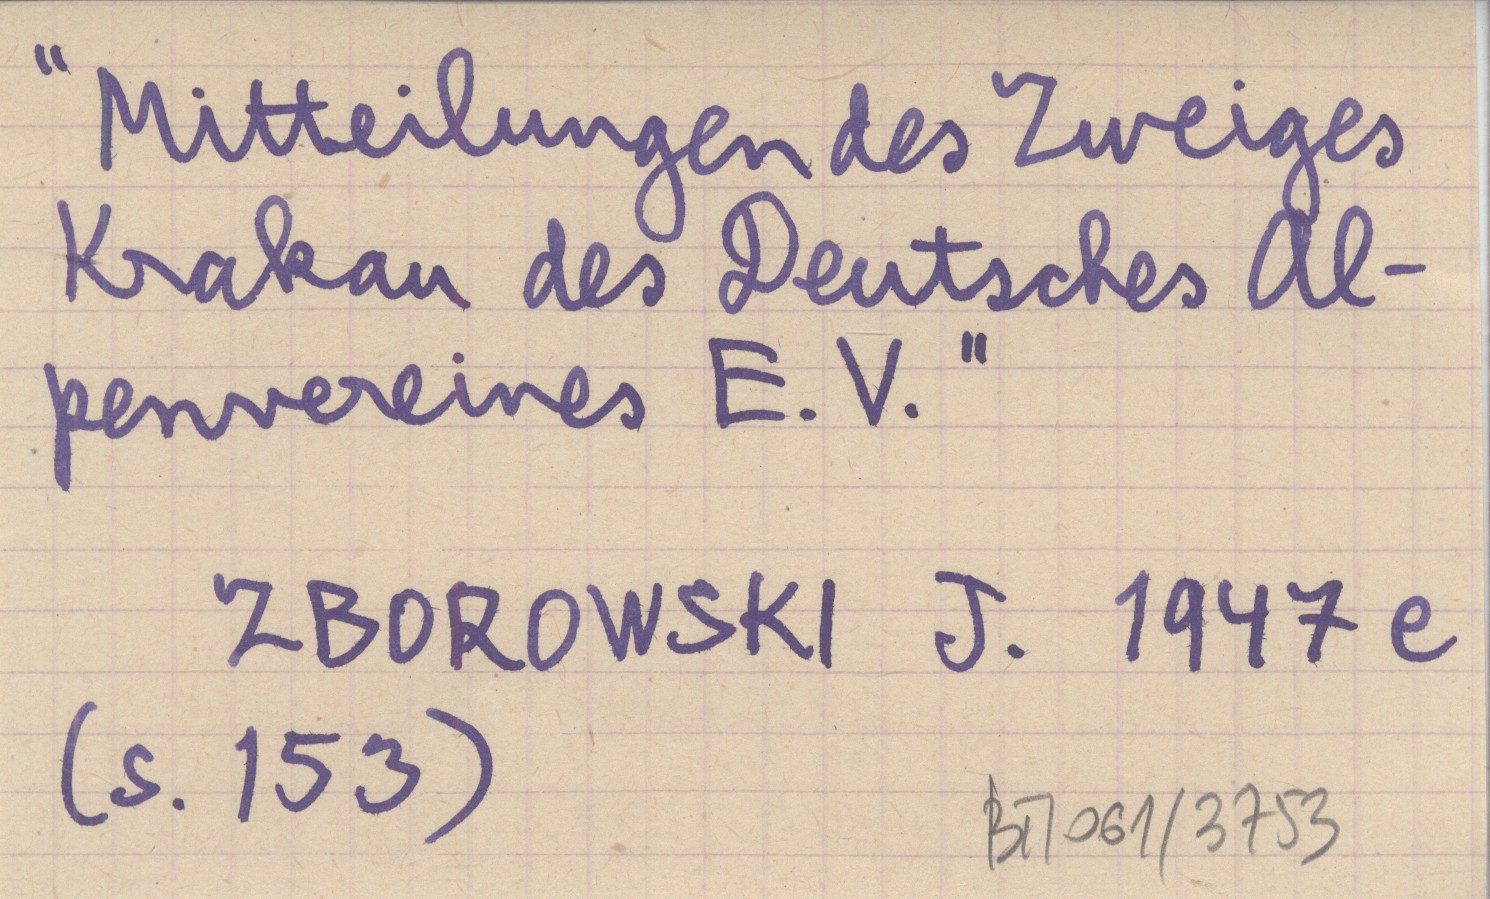 "Mitteilungen des Zweiges
Krakau des Deutsches Al-
penvereines E.V."
ZBOROWSKI J. 1947 e
(s. 153)
061/3753